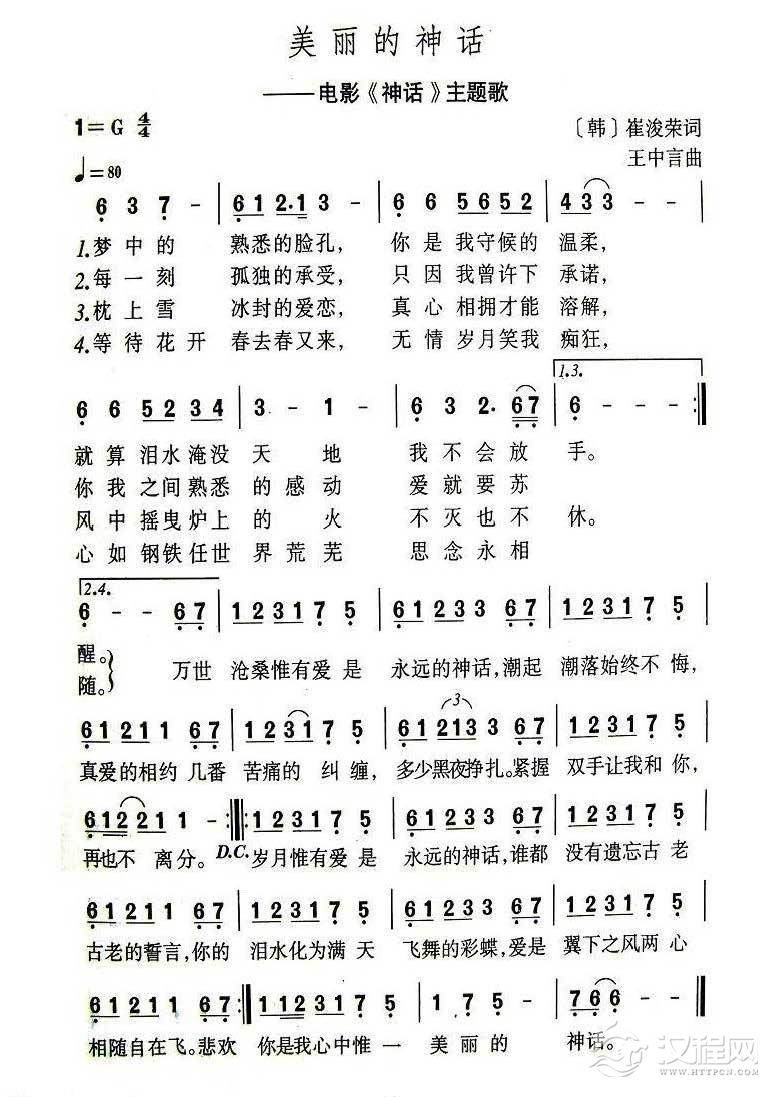 美丽的神话
——电影《神话》主题歌
1=G 4/4
〔韩〕崔浚荣词
♩=80
王中言曲
6 3 7 - | 6 1 2·1 3 - | 6 6 5 6 5 2 | 4 3 3 - - |
1.梦中的 熟悉的脸孔， 你是我守候的 温柔，
2.每一刻 孤独的承受， 只因我曾许下 承诺，
3.枕上雪 冰封的爱恋， 真心相拥才能 溶解，
4.等待花开 春去春又来， 无情岁月笑我 痴狂，
1.3.
6 6 5 2 3 4 | 3 - 1 - | 6 3 2· 6 7 | 6 - - - :|
就算泪水淹没 天地 我不会放 手。
你我之间熟悉 的感动 爱就要苏
风中摇曳炉上 的火 不灭也不 休。
心如钢铁任世 界荒芜 思念永相
2.4.
6 - - 6 7 | 1 2 3 1 7 5 | 6 1 2 3 3 6 7 | 1 2 3 1 7 5 |
醒。 万世 沧桑惟有爱是 永远的神话，潮起 潮落始终不悔，
随。
6 1 2 1 1 6 7 | 1 2 3 1 7 5 | 6 1 2 1 3 3 6 7 | 1 2 3 1 7 5 |
真爱的相约 几番 苦痛的 纠缠， 多少黑夜挣扎。紧握 双手让我和你，
6 1 2 2 2 1 1 - :|||: 1 2 3 1 7 5 | 6 1 2 3 3 6 7 | 1 2 3 1 7 5 |
再也不 离分。 D.C. 岁月惟有爱是 永远的神话，谁都 没有遗忘古老
6 1 2 1 1 6 7 | 1 2 3 1 7 5 | 6 1 2 3 3 6 7 | 1 2 3 1 7 5 |
古老的誓言，你的 泪水化为满天 飞舞的彩蝶，爱是 翼下之风两心
6 1 2 1 1 6 7 :| 1 2 3 1 7 5 | 6 1 7 5 | 7 6 6 - - ‖
相随自在飞。悲欢 你是我心中惟一 美丽的 神话。
汉程网
HTTPCN.COM